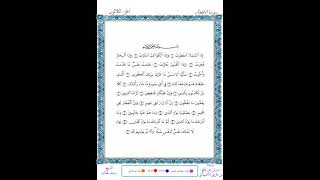 سورة الانفطار
الجزء الثلاثون
بسم الله الرحمن الرحيم
إِذَا السَّمَاءُ انفَطَرَتْ ١ وَإِذَا الْكَوَاكِبُ انتَثَرَتْ ٢ وَإِذَا الْبِحَارُ
فُجِّرَتْ ٣ وَإِذَا الْقُبُورُ بُعْثِرَتْ ٤ عَلِمَتْ نَفْسٌ مَّا قَدَّمَتْ
وَأَخَّرَتْ ٥ يَٰأَيُّهَا الْإِنسَٰنُ مَا غَرَّكَ بِرَبِّكَ الْكَرِيمِ ٦ الَّذِي
خَلَقَكَ فَسَوَّىٰكَ فَعَدَلَكَ ٧ فِي أَيِّ صُورَةٍ مَّا شَاءَ رَكَّبَكَ ٨ كَلَّا
بَلْ تُكَذِّبُونَ بِالدِّينِ ٩ وَإِنَّ عَلَيْكُمْ لَحَٰفِظِينَ ١٠ كِرَامًا كَٰتِبِينَ ١١
يَعْلَمُونَ مَا تَفْعَلُونَ ١٢ إِنَّ الْأَبْرَارَ لَفِي نَعِيمٍ ١٣ وَإِنَّ الْفُجَّارَ لَفِي
جَحِيمٍ ١٤ يَصْلَوْنَهَا يَوْمَ الدِّينِ ١٥ وَمَا هُمْ عَنْهَا بِغَائِبِينَ ١٦ وَمَا
أَدْرَىٰكَ مَا يَوْمُ الدِّينِ ١٧ ثُمَّ مَا أَدْرَىٰكَ مَا يَوْمُ الدِّينِ ١٨ يَوْمَ
لَا تَمْلِكُ نَفْسٌ لِّنَفْسٍ شَيْئًا وَالْأَمْرُ يَوْمَئِذٍ لِّلَّهِ ١٩